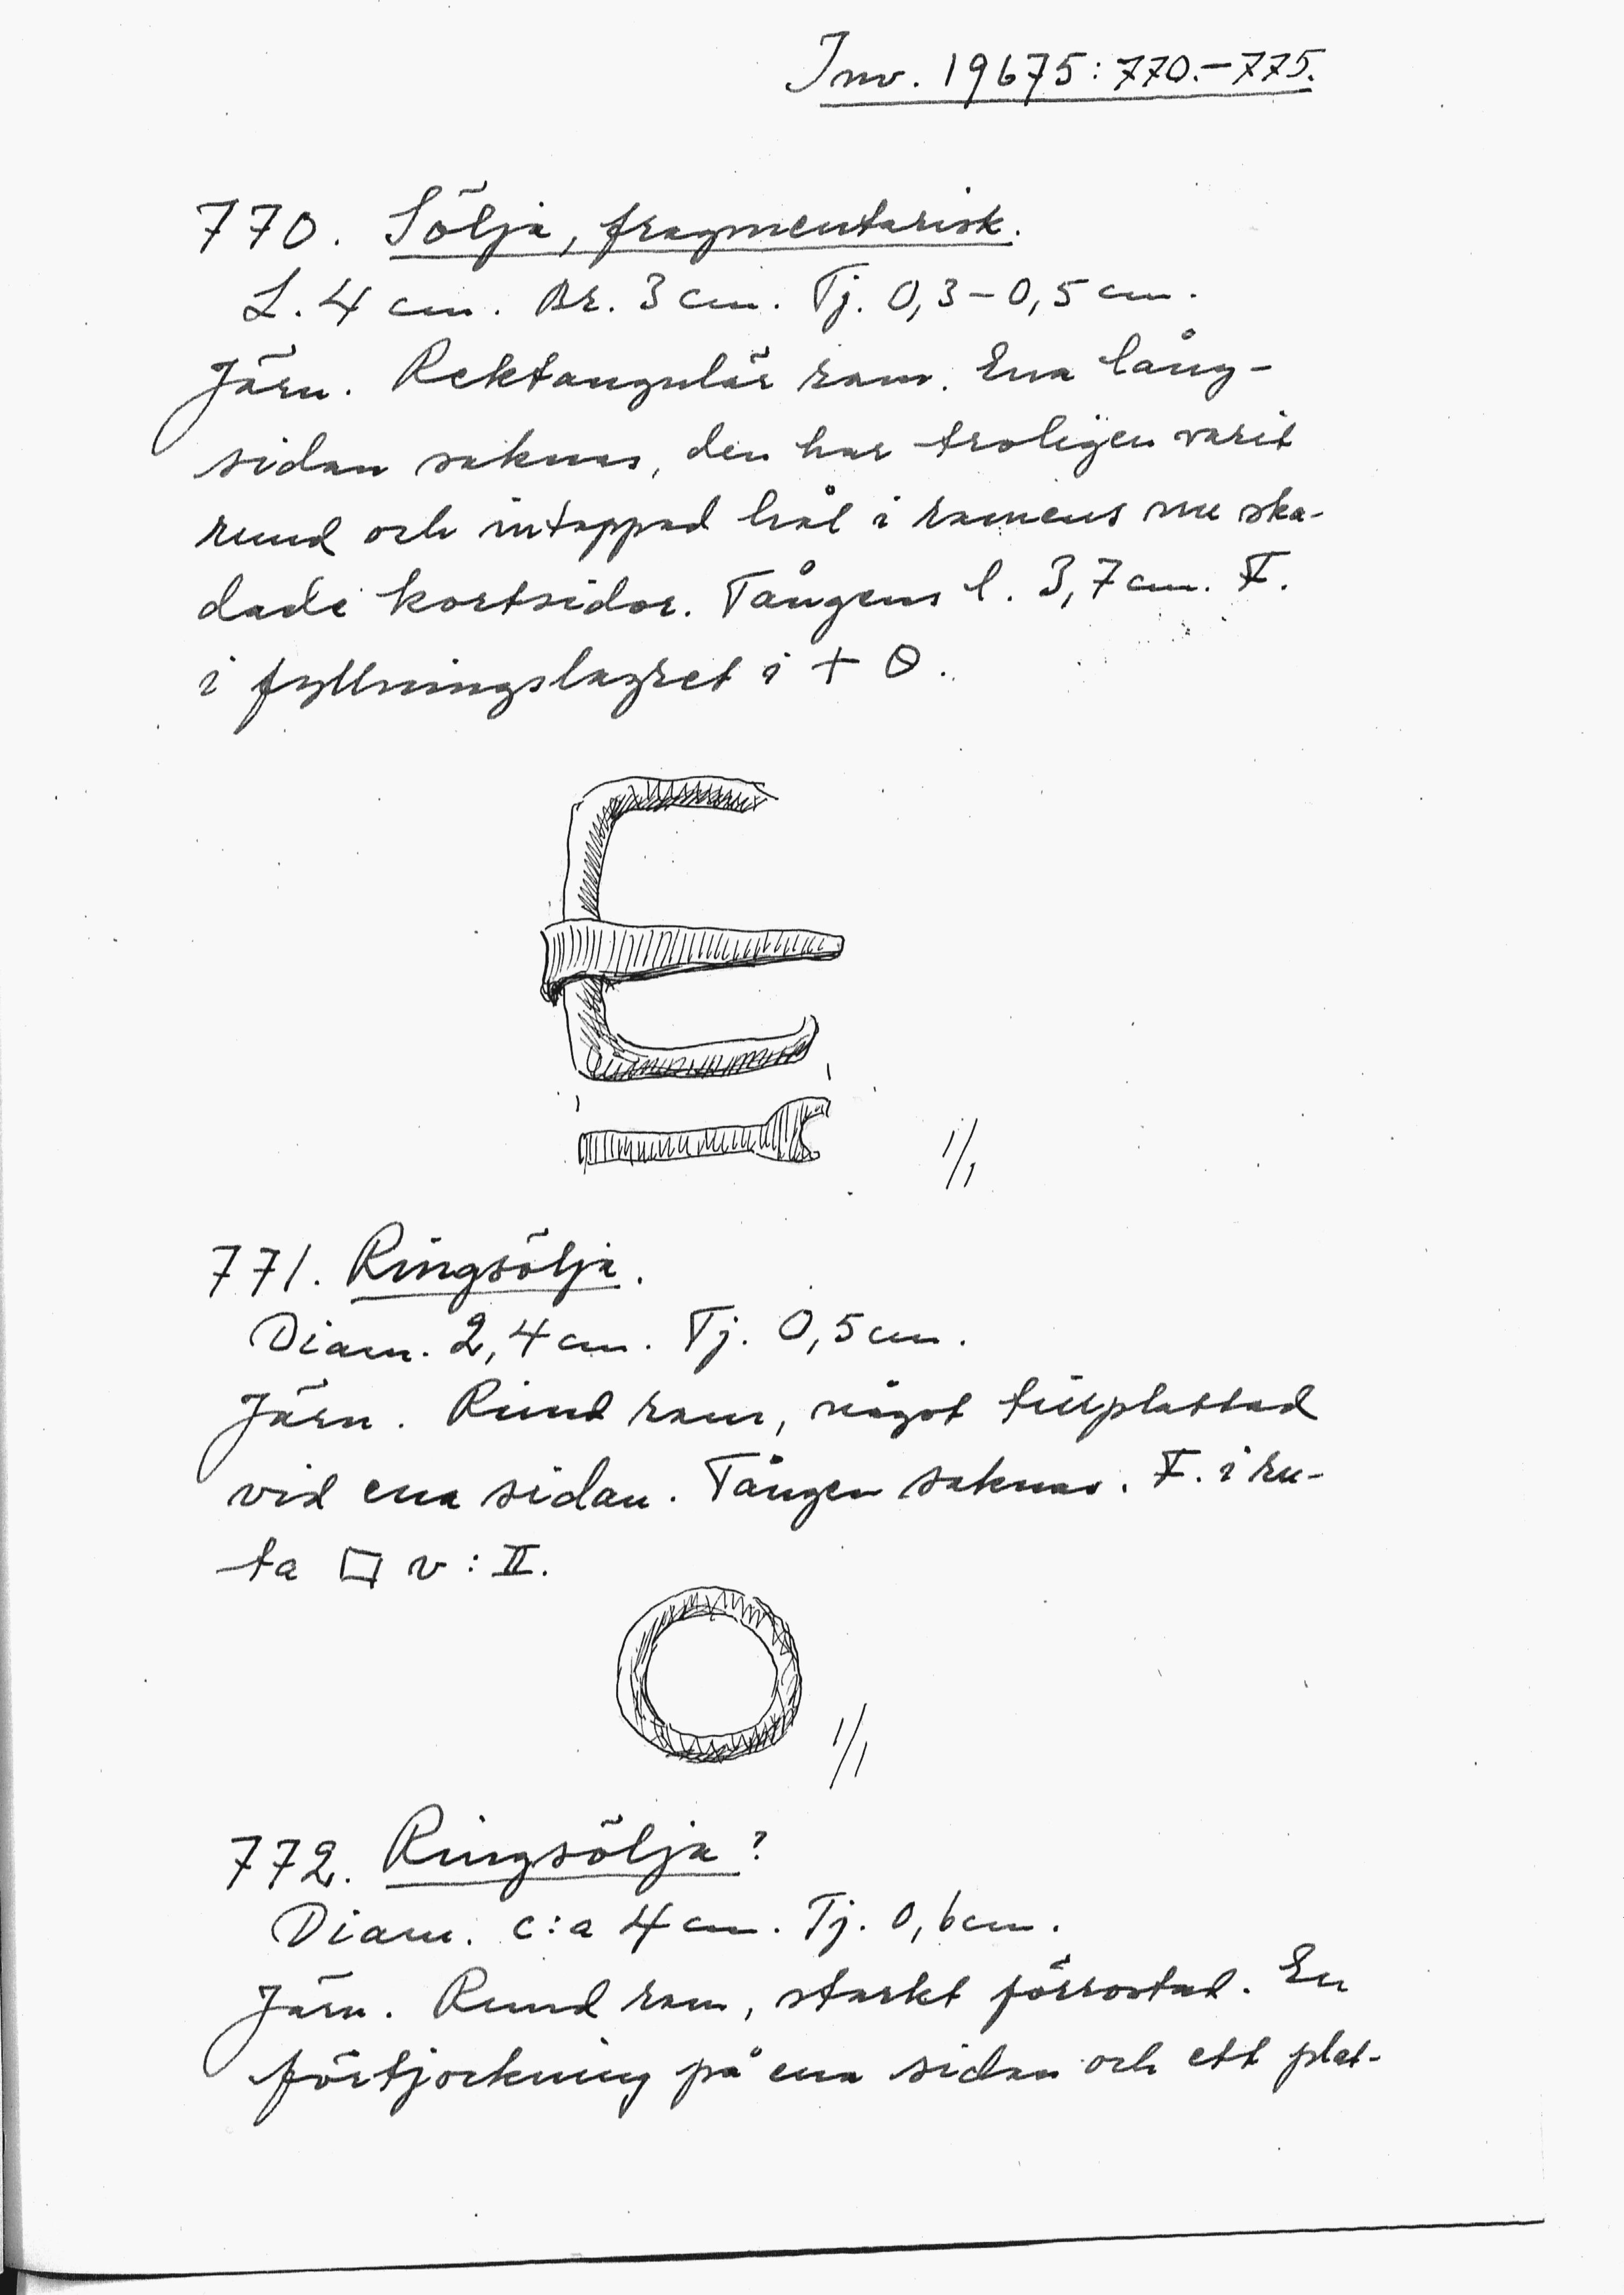 Inv. 19675:770.-775.
770. Sölja, fragmentarisk.
L. 4 cm. Br. 3 cm. Tj. 0,3-0,5 cm.
Järn. Rektangulär ram. Ena lång-
sidan saknas, den har troligen varit
rund och intappad hål i ramens nu ska-
dade kortsidor. Tångens l. 3,7 cm. F.
i fyllningslagret i + θ.
1/1
771. Ringsölja.
Diam. 2,4 cm. Tj. 0,5 cm.
Järn. Rund ram, något tillplattad
vid ena sidan. Tången saknas. F. i ru-
ta □ v : II.
1/1
772. Ringsölja?
Diam. c:a 4 cm. Tj. 0,6 cm.
Järn. Rund ram, starkt förrostad. En
förtjockning på ena sidan och ett plat-